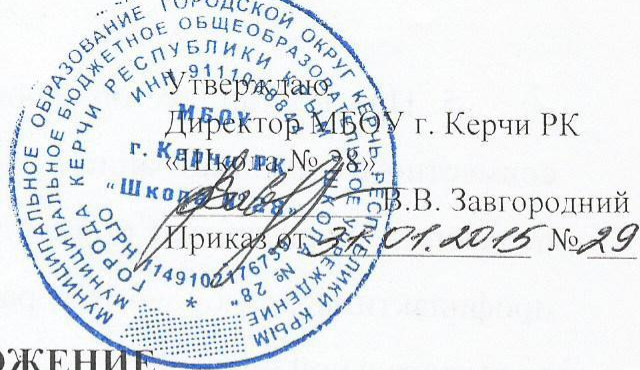 Утверждаю
Директор МБОУ г. Керчи РК
«Школа № 28»
В.В. Завгородний
Приказ от 31.01.2015 № 29
МУНИЦИПАЛЬНОЕ ОБРАЗОВАНИЕ ГОРОДСКОЙ ОКРУГ КЕРЧЬ РЕСПУБЛИКИ КРЫМ
МУНИЦИПАЛЬНОЕ БЮДЖЕТНОЕ ОБЩЕОБРАЗОВАТЕЛЬНОЕ УЧРЕЖДЕНИЕ
ГОРОДА КЕРЧИ РЕСПУБЛИКИ КРЫМ "ШКОЛА № 28"
ОГРН
ИНН
МБОУ
г. Керчи РК
"Школа № 28"